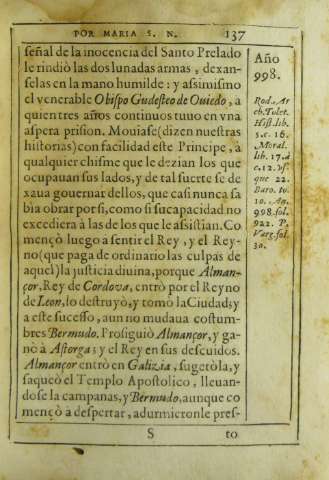 POR MARIA S. N. 137
señal de la inocencia del Santo Prelado
le rindiò las dos lunadas armas, dexan-
selas en la mano humilde: y assimismo
el venerable Obispo Gudesteo de Ouiedo, a
quien tres años continuos tuuo en vna
aspera prision. Mouiase (dizen nuestras
historias) con facilidad este Principe, à
qualquier chisme que le dezian los que
ocupauan sus lados, y de tal suerte se de
xaua gouernar dellos, que casi nunca sa
bia obrar por si, como si su capacidad no
excediera à las de los que le assistian. Co
mençò luego a sentir el Rey, y el Rey-
no (que paga de ordinario las culpas de
aquel) la justicia diuina, porque Alman-
çor, Rey de Cordova, entrò por el Reyno
de Leon, lo destruyò, y tomò la Ciudad; y
a este sucesso, aun no mudaua costum-
bres Bermudo. Prosiguiò Almançor, y ga-
nò à Astorga; y el Rey en sus descuidos.
Almançor entrò en Galizia, sugetòla, y
saqueò el Templo Apostolico, lleuan-
dose la campanas, y Bermudo, aunque co
mençò à despertar, adurmieronle pres-
S to
Año
998.
Rod. Ar
ch. Tolet.
Hist. lib.
5. c. 16.
Moral.
lib. 17. à
c. 12. vs.
que 22.
Baro. to.
10. An.
998. fol.
922. P.
Varg. fol.
30.